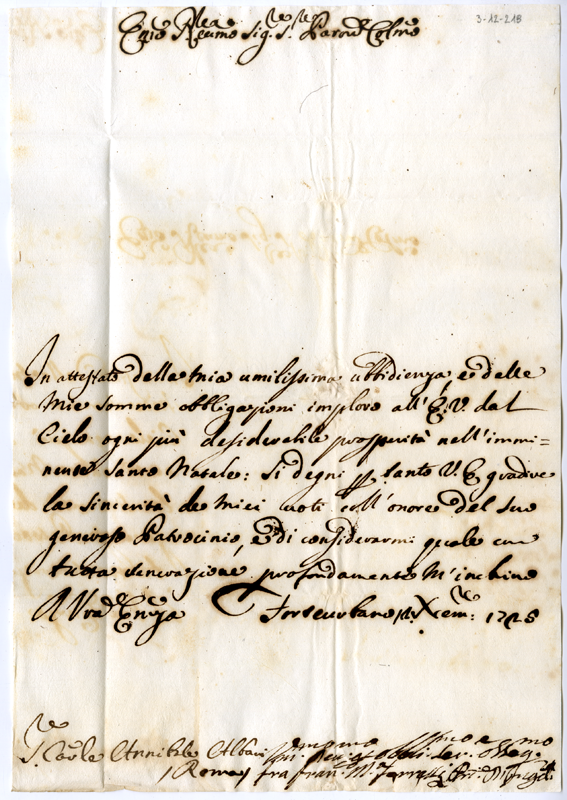 3-12-218
Em̃o e Reumo Sig.r Sig.r e Paron Colmo
In attestato della mia umilissima ubbidienza, e delle
mie somme obbligazioni imploro all' E. V. dal
Cielo ogni più desiderabile prosperità nell' immi=
nente Santo Natale: Si degni tanto V. E gradire
la sincerità de miei voti coll' onore del suo
generoso Patrocinio, e di considerarmi quale con
tutta venerazione profondamente m' inchino
A Vra Emza Forteurbano Xem: 1725
S.r Carle Annibale Albani
/Roma/ fra fran.